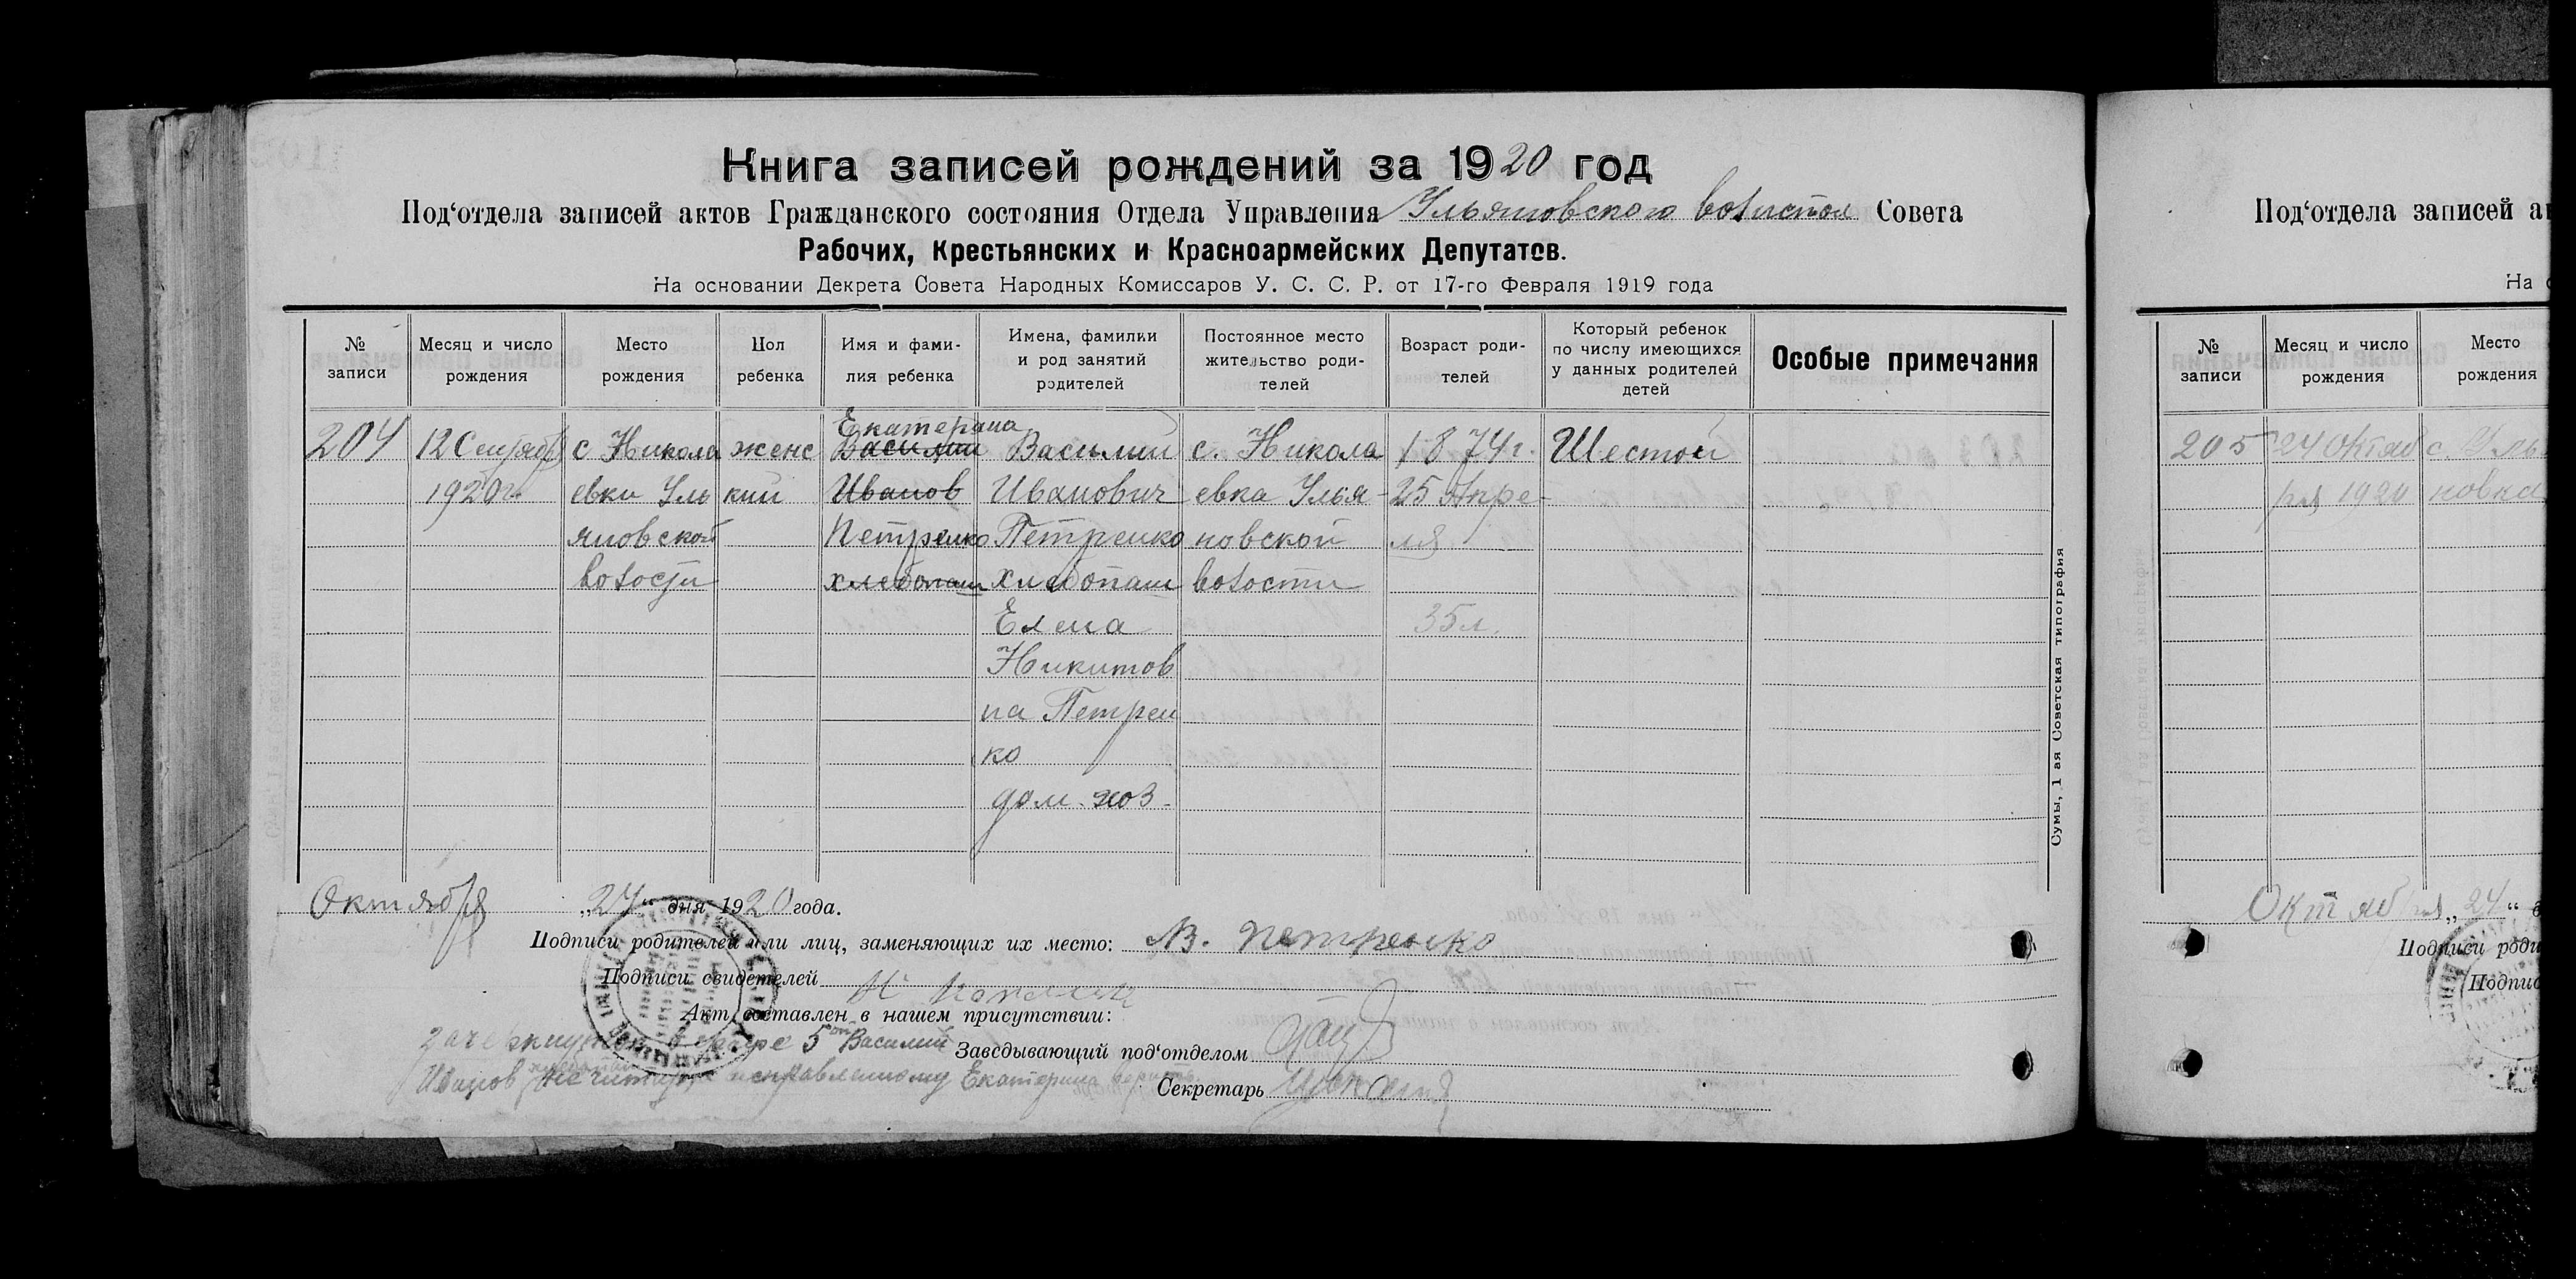 Книга записей рождений за 1920 год
Под‘отдела записей актов Гражданского состояния Отдела Управления Ульяновского волистол Совета
Рабочих, Крестьянских и Красноармейских Депутатов.
На основании Декрета Совета Народных Комиссаров У. С. С. Р. от 17-го Февраля 1919 года
№ записи
Месяц и число рождения
Место рождения
Пол ребенка
Имя и фами-
лия ребенка
Имена, фамилии
и род занятий
родителей
Постоянное место
жительство роди-
телей
Возраст роди-
телей
Который ребенок
по числу имеющихся
у данных родителей
детей
Особые примечания
204
12 Сентября
1920 г.
с Никола
евки Уль
яновской
волости
женс
кий
Екатерина
Василий
Иванов
Петренко
хлебопаш
Василий
Иванович
Петренко
хлебопаш
Елена
Никитов
на Петрен
ко
дом. хоз.
с. Никола
евка Улья-
новской
волости
1874 г.
25 Апре-
ля
35 л.
Шестой
Октября „24“ дня 1920 года.
Подписи родителей или лиц, заменяющих их место: В. Петренко
Подписи свидетелей
Акт составлен в нашем присутствии:
зачеркнутому в графе 5ой Василий
Иванов не читать исправленному Екатерина верить
Заведывающий под‘отделом
Секретарь
Сумы, 1-ая Советская типография
Под‘отдела записей а
На о
№
записи
Месяц и число
рождения
Место
рождения
205
24 Октяб
ря 1920
с. Улья
новка
Октября „24“ д
Подписи роди
Подпис